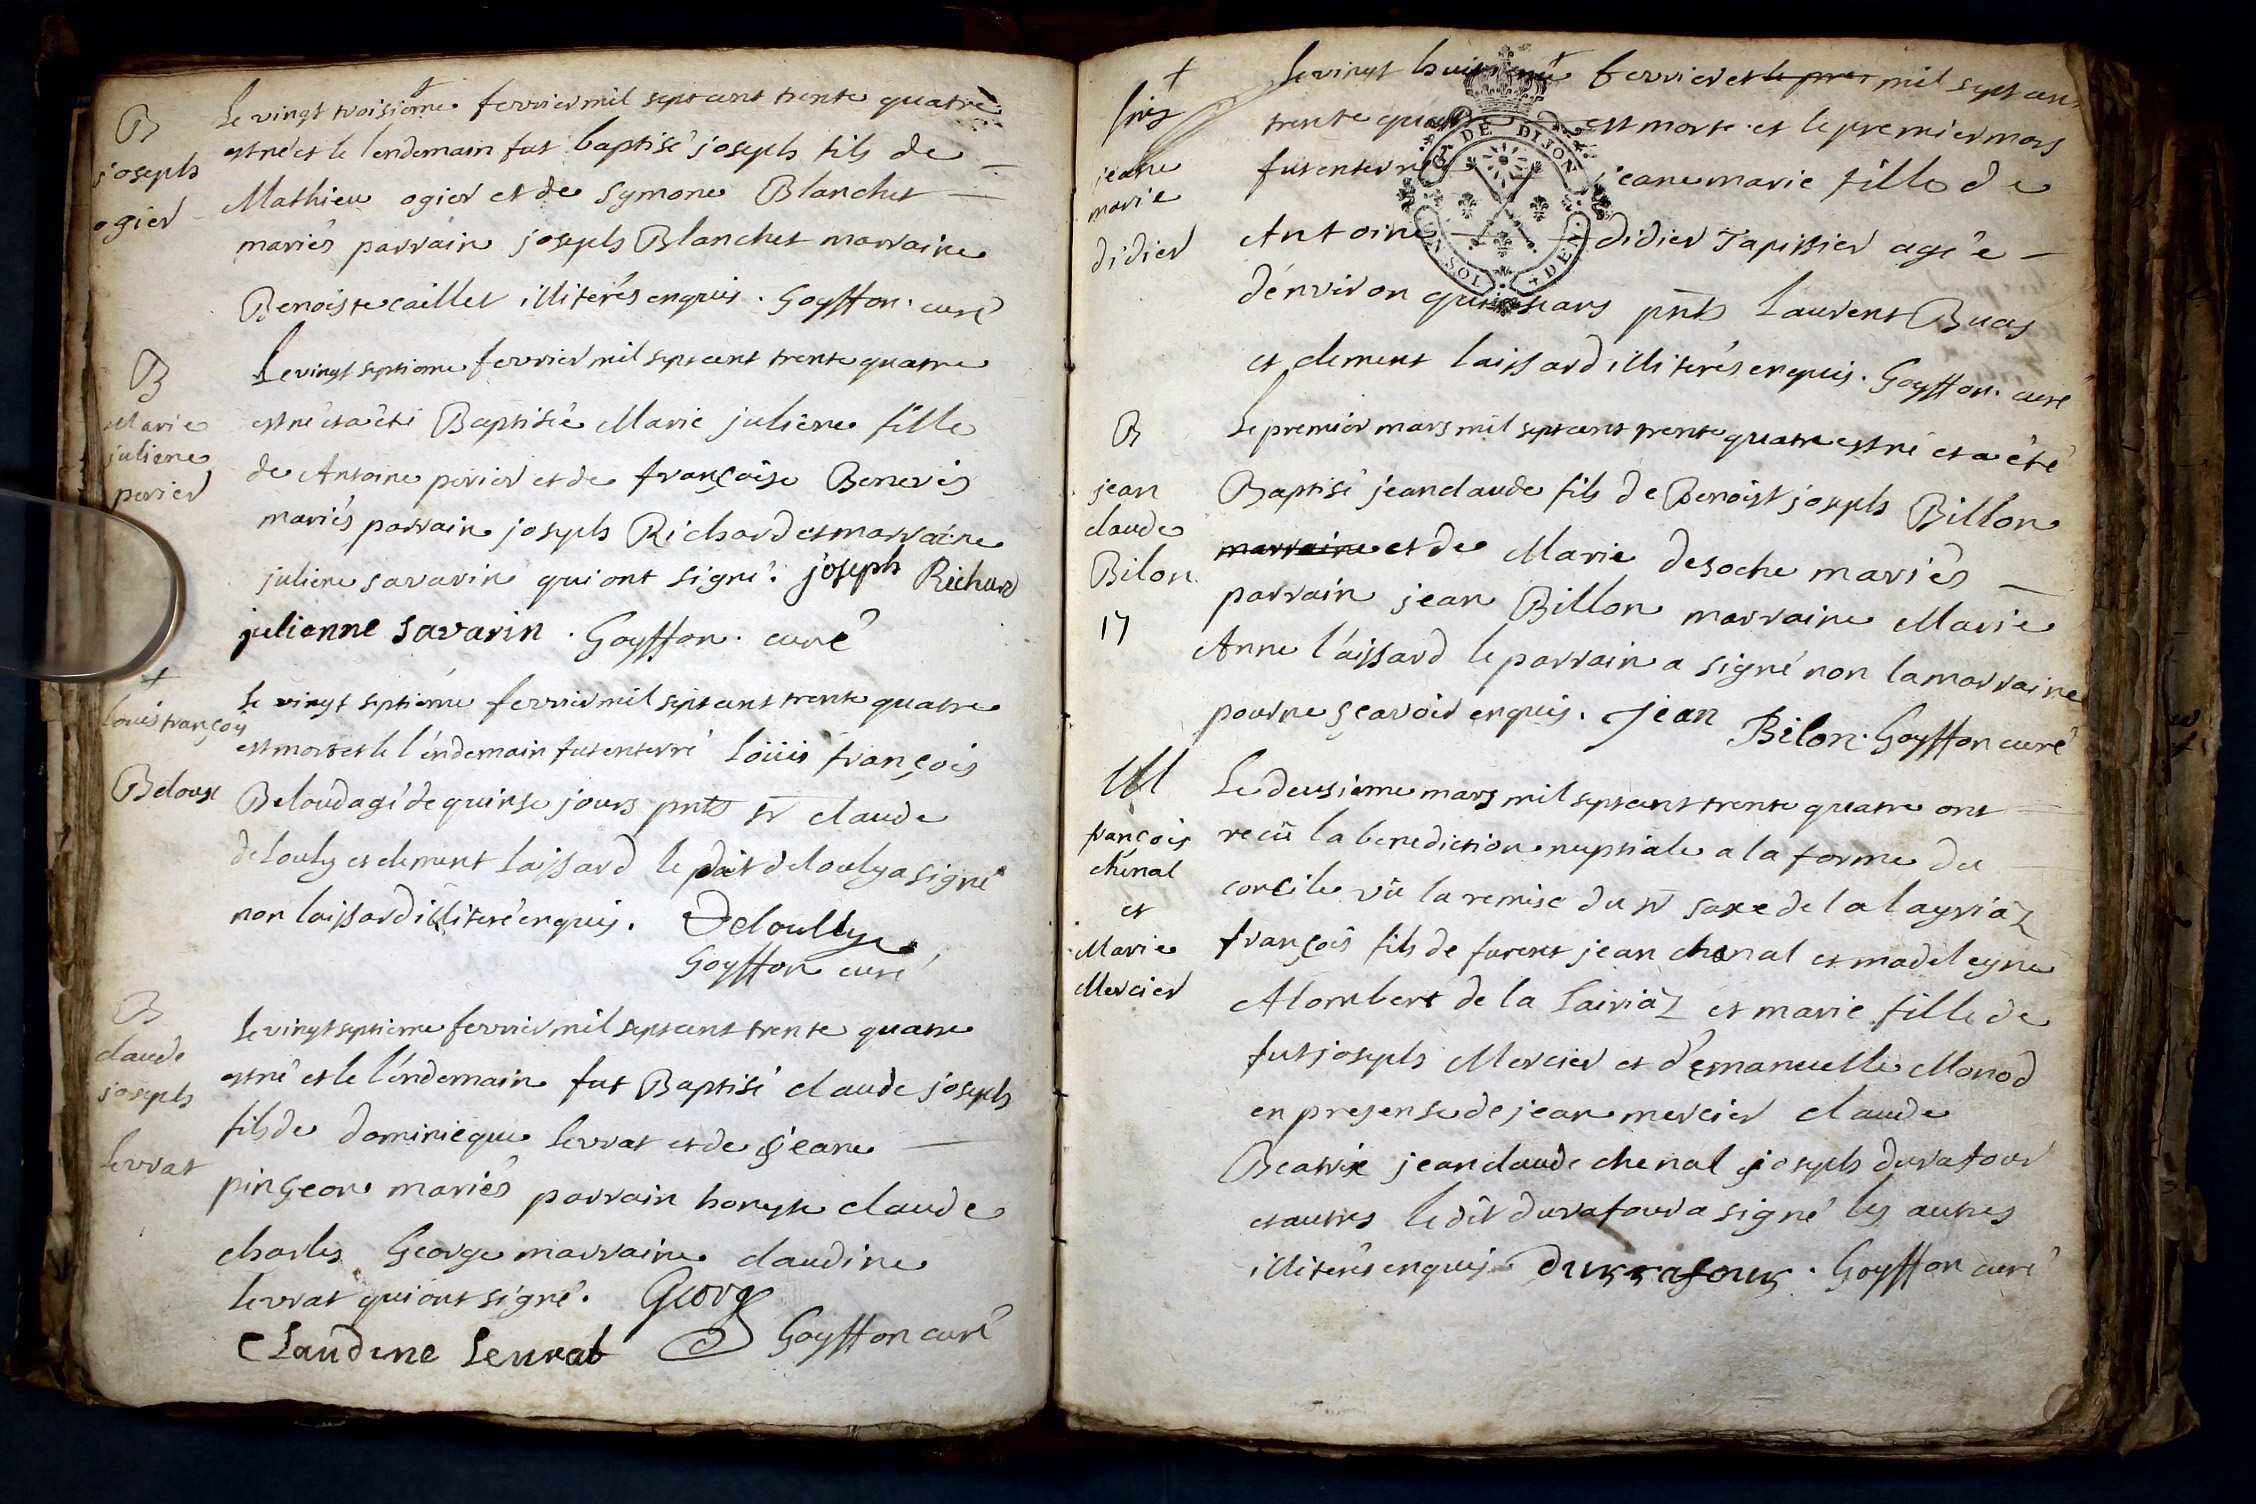 B
joseph
ogier
Le vingt troisiéme fevrier mil sept cent trente quatre
est né et le lendemain fut baptisé joseph fils de
Mathieu ogier et de symone Blanchet
mariés parrain joseph Blanchet marraine
Benoiste caillet illiterés enquis. Goyffon. curé
B
Marie
juliene
perier
Le vingt septieme fevrier mil sept cent trente quatre
est né et a été Baptisée Marie juliene fille
de Antoine perier et de françoise Beneves
mariés parrain joseph Richard et marraine
juliene savarin qui ont signé. joseph Richard
julienne savarin. Goyffon. curé
+
louis françoy
Beloux
Le vingt septiéme fevrier mil sept cent trente quatre
est mort et le l'éndemain fut enterré Loüis françois
Beloud agé de quinse jours pnts sr claude
delouly et clement laissard le dit delouly a signé
non laissard illiteré enquis. Deloullye
Goyffon curé
B
claude
joseph
levrat
Le vingt septieme fevrier mil sept cent trente quatre
est né et le l'éndemain fut Baptisé claude joseph
fils de dominique levrat et de jeane
pingeon mariés parrain honeste claude
charles George marraine claudine
levrat qui ont signé. George
Claudine Levrat Goyffon curé
+
jeane
marie
didier
Le vingt huitiéme fevrier et le pre mil sept cent
trente quatre est morte et le premier mars
fut enterrée jeane marie fille de
Antoine didier Tapissier agée
d'énviron quinse ans pnts Laurent Buas
et clement laissard illiterés enquis. Goyffon. curé
B
jean
claude
Bilon
17
Le premier mars mil sept cent trente quatre est né et a été
Baptisé jean claude fils de Benoist joseph Billon
marraine et de Marie desoche mariés
parrain jean Billon marraine Marie
Anne l'aissard le parrain a signé non la marraine
pour ne sçavoir enquis. Jean Bilon. Goyffon curé
M
françois
chénal
et
Marie
Mercier
Le deusiéme mars mil sept cent trente quatre ont
recü la benediction nuptiale a la forme du
concile vü la remise du sr saxe de la layriaz
françois fils de furent jean chenal et madeleyne
Alombert de la Lairiaz et marie fille de
fut joseph Mercier et d'émanuelle Monod
en presense de jean mercier claude
Beatrix jean claude chenal joseph durafour
et autres le dit durafour a signé les autres
illiterés enquis durrafour. Goyffon curé